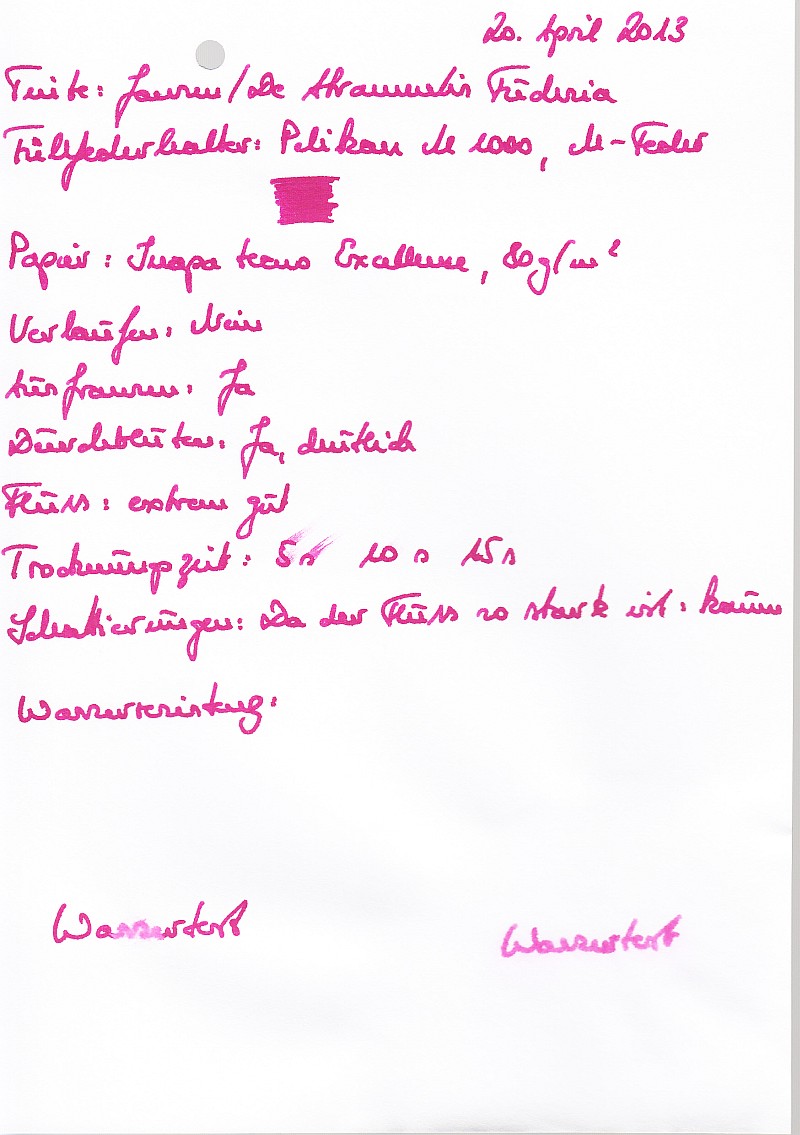 20. April 2013
Tinte: Jansen/De Atramentis Fuchsia
Füllfederhalter: Pelikan M 1000, M-Feder
Papier: Inapa tecno Excellence, 80g/m²
Verlaufen: Nein
Ausfransen: Ja
Durchbluten: Ja, deutlich
Fluss: extrem gut
Trocknungszeit: 5s 10 s 15s
Schattierungen: Da der Fluss so stark ist: kaum
Wasserresistenz:
Wassertest
Wassertest